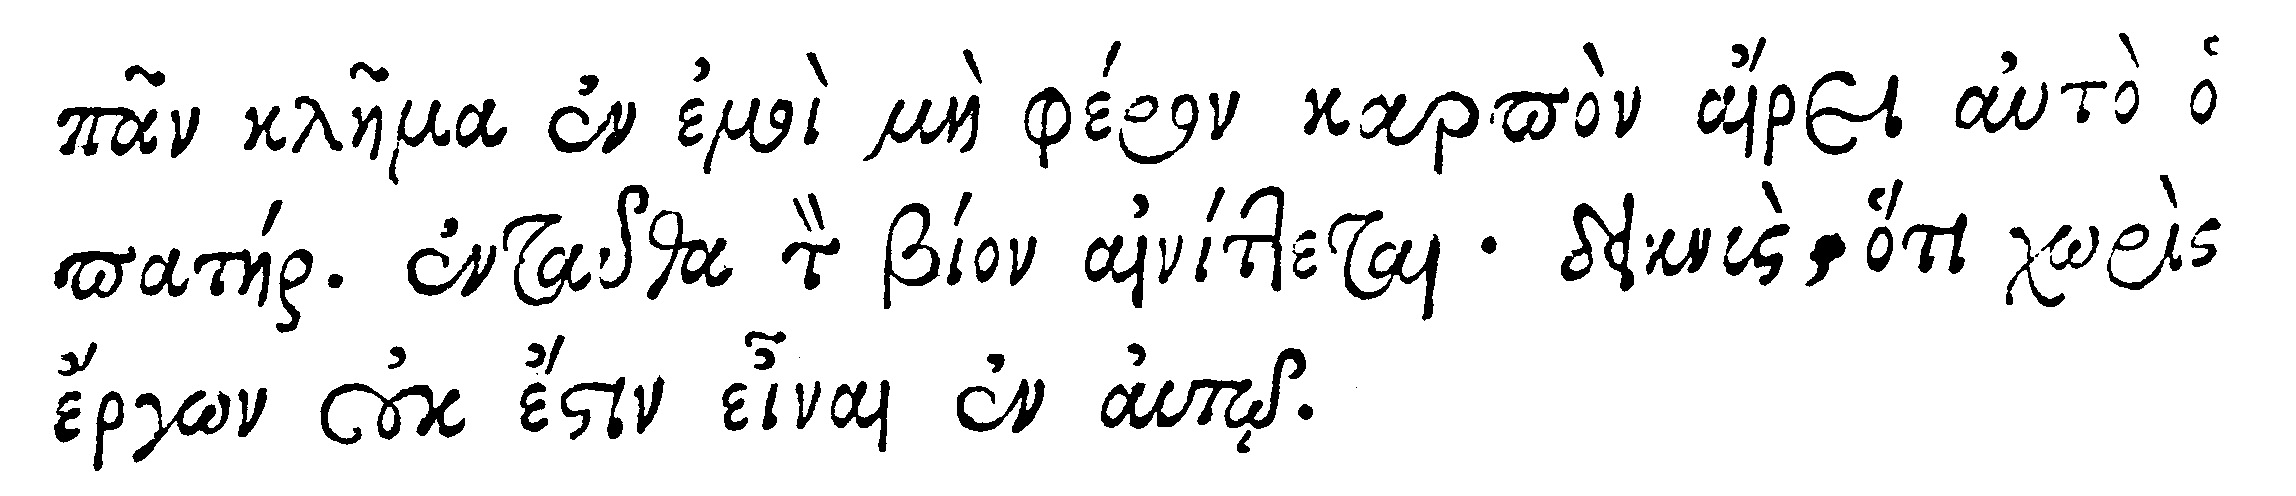 πᾶν κλῆμα ἐν ἐμοὶ μὴ φέρον καρπὸν αἴρει αὐτὸ ὁ
πατήρ. ἐνταῦθα τὸν βίον αἰνίττεται · δεικνὺς, ὅτι χωρὶς
ἔργων οὐκ ἔστιν εἶναι ἐν αὐτῷ.